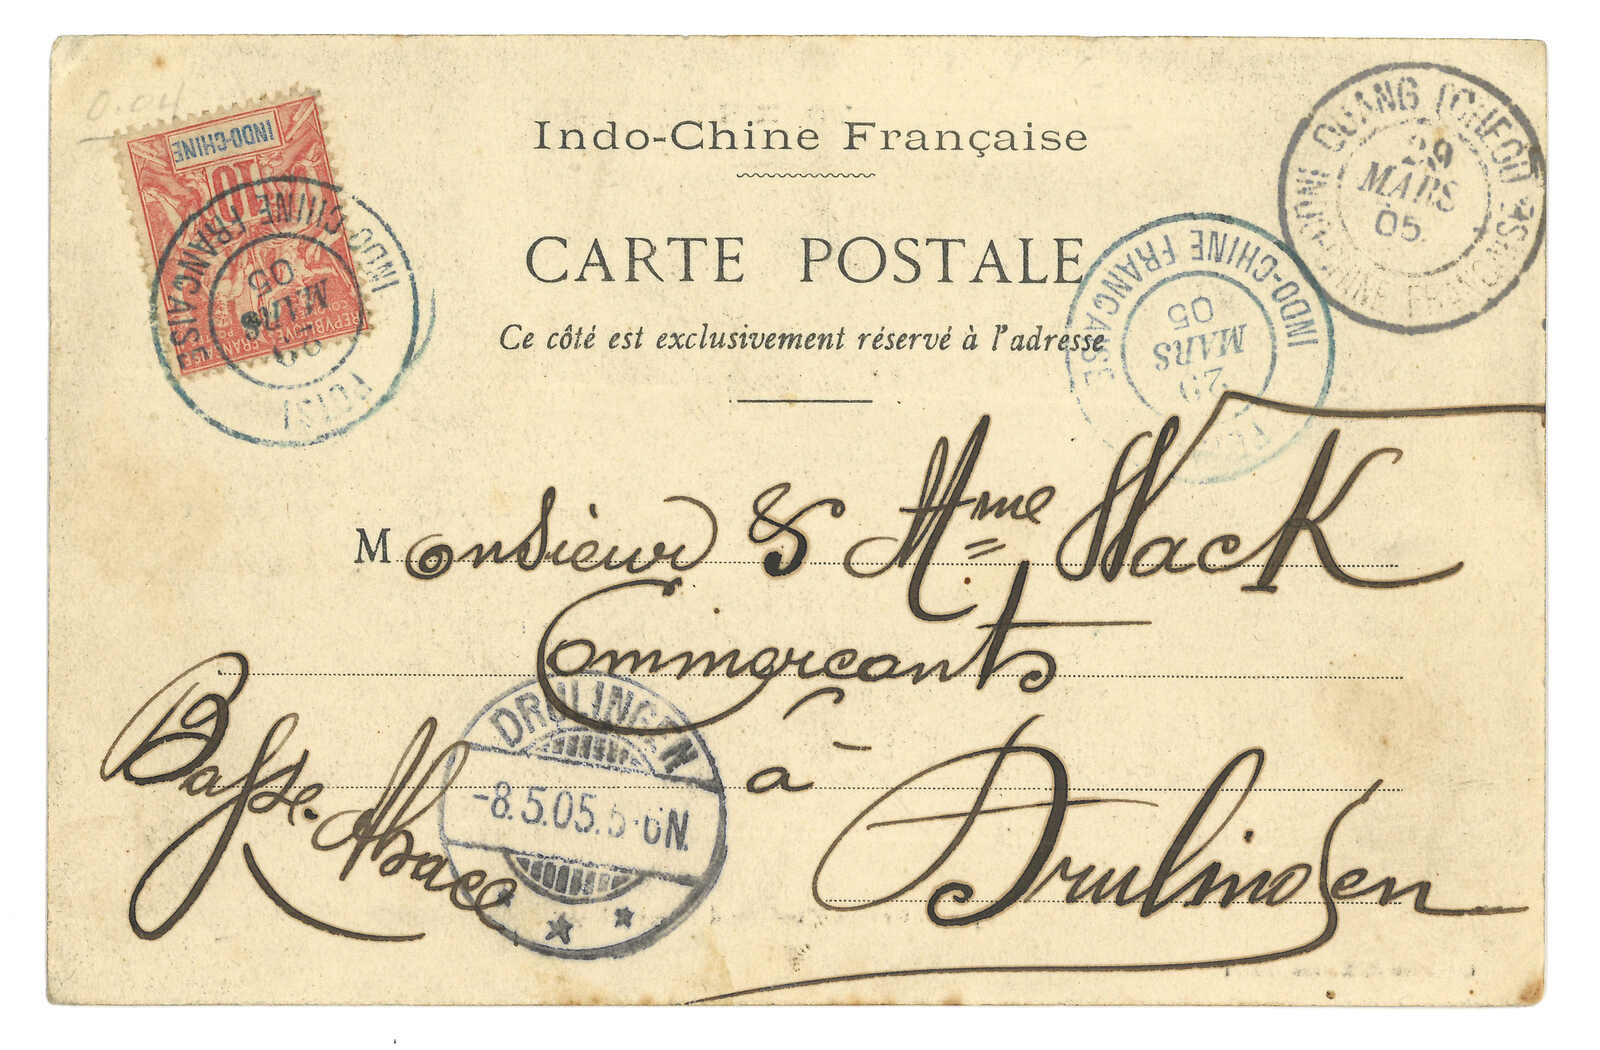 0.04
INDO-CHINE
10
INDO-CHINE FRANÇAISE
MARS
05
POTSI
Indo-Chine Française
CARTE POSTALE
Ce côté est exclusivement réservé à l'adresse
INDO-CHINE FRANCAISE
29
MARS
05
QUANG TCHEOU
29
MARS
05
INDO-CHINE FRANCAISE
Monsieur & Mme Wack
Commercants
à
Drulingen
Basse-Alsace
DRULINGEN
-8.5.05.5-6N.